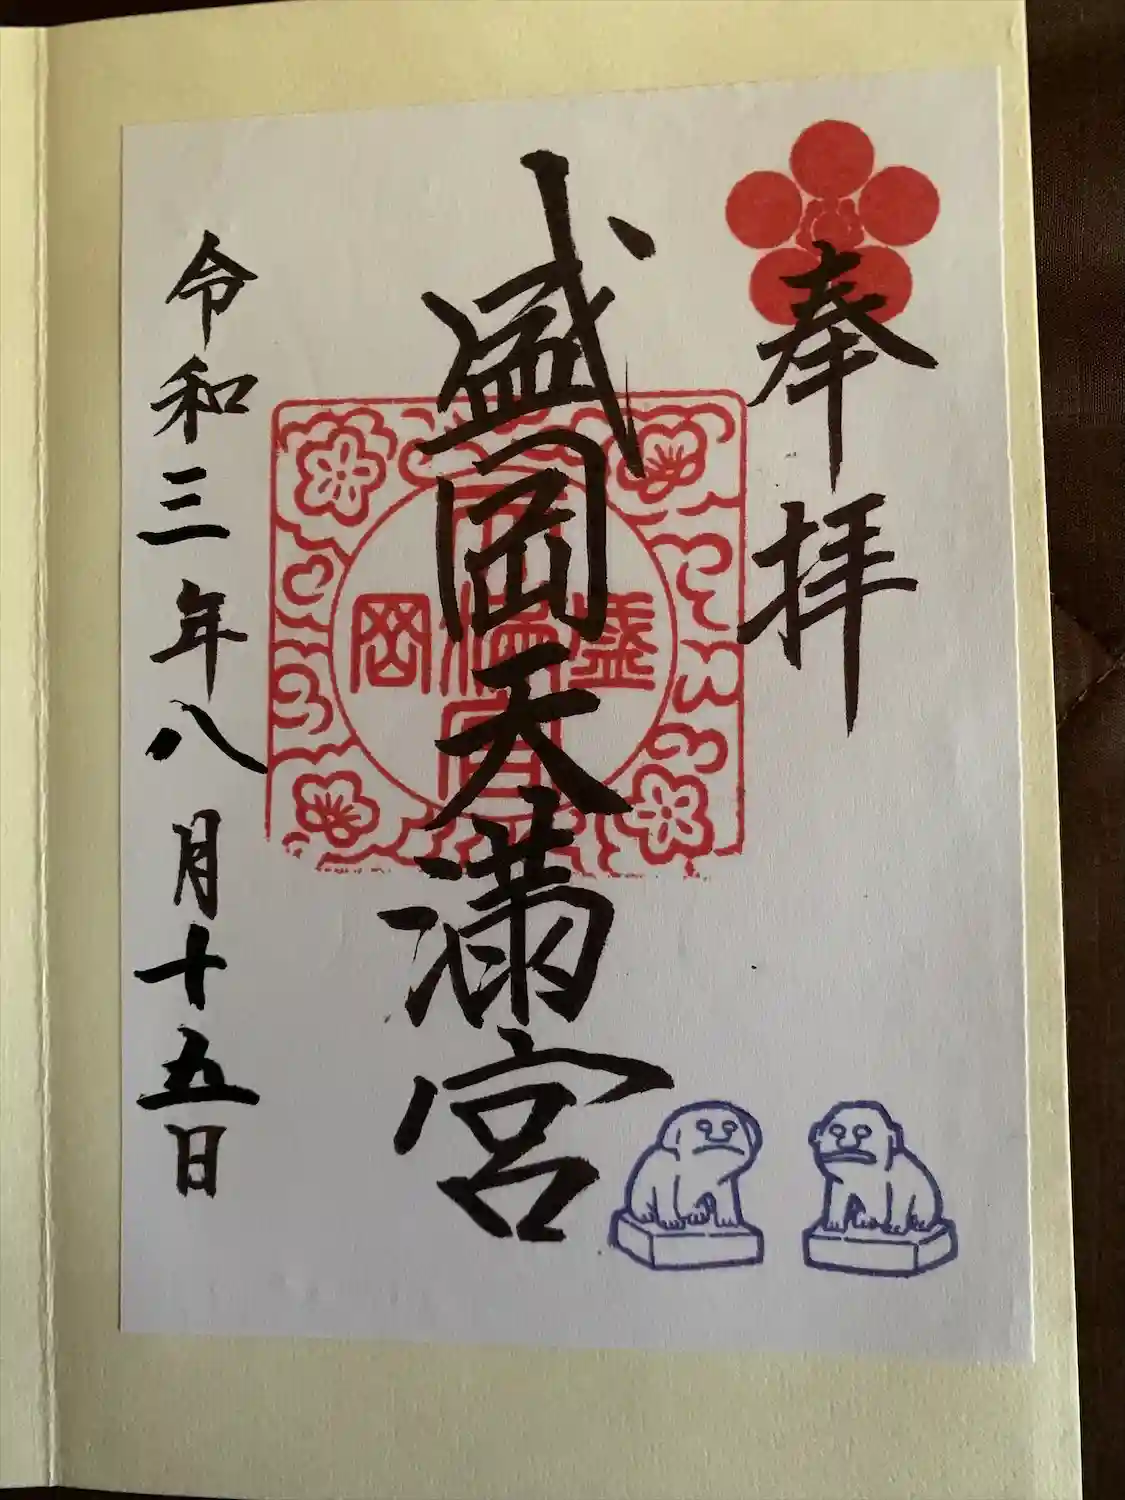 奉拝
盛岡天満宮
令和三年八月十五日
盛岡
天満宮